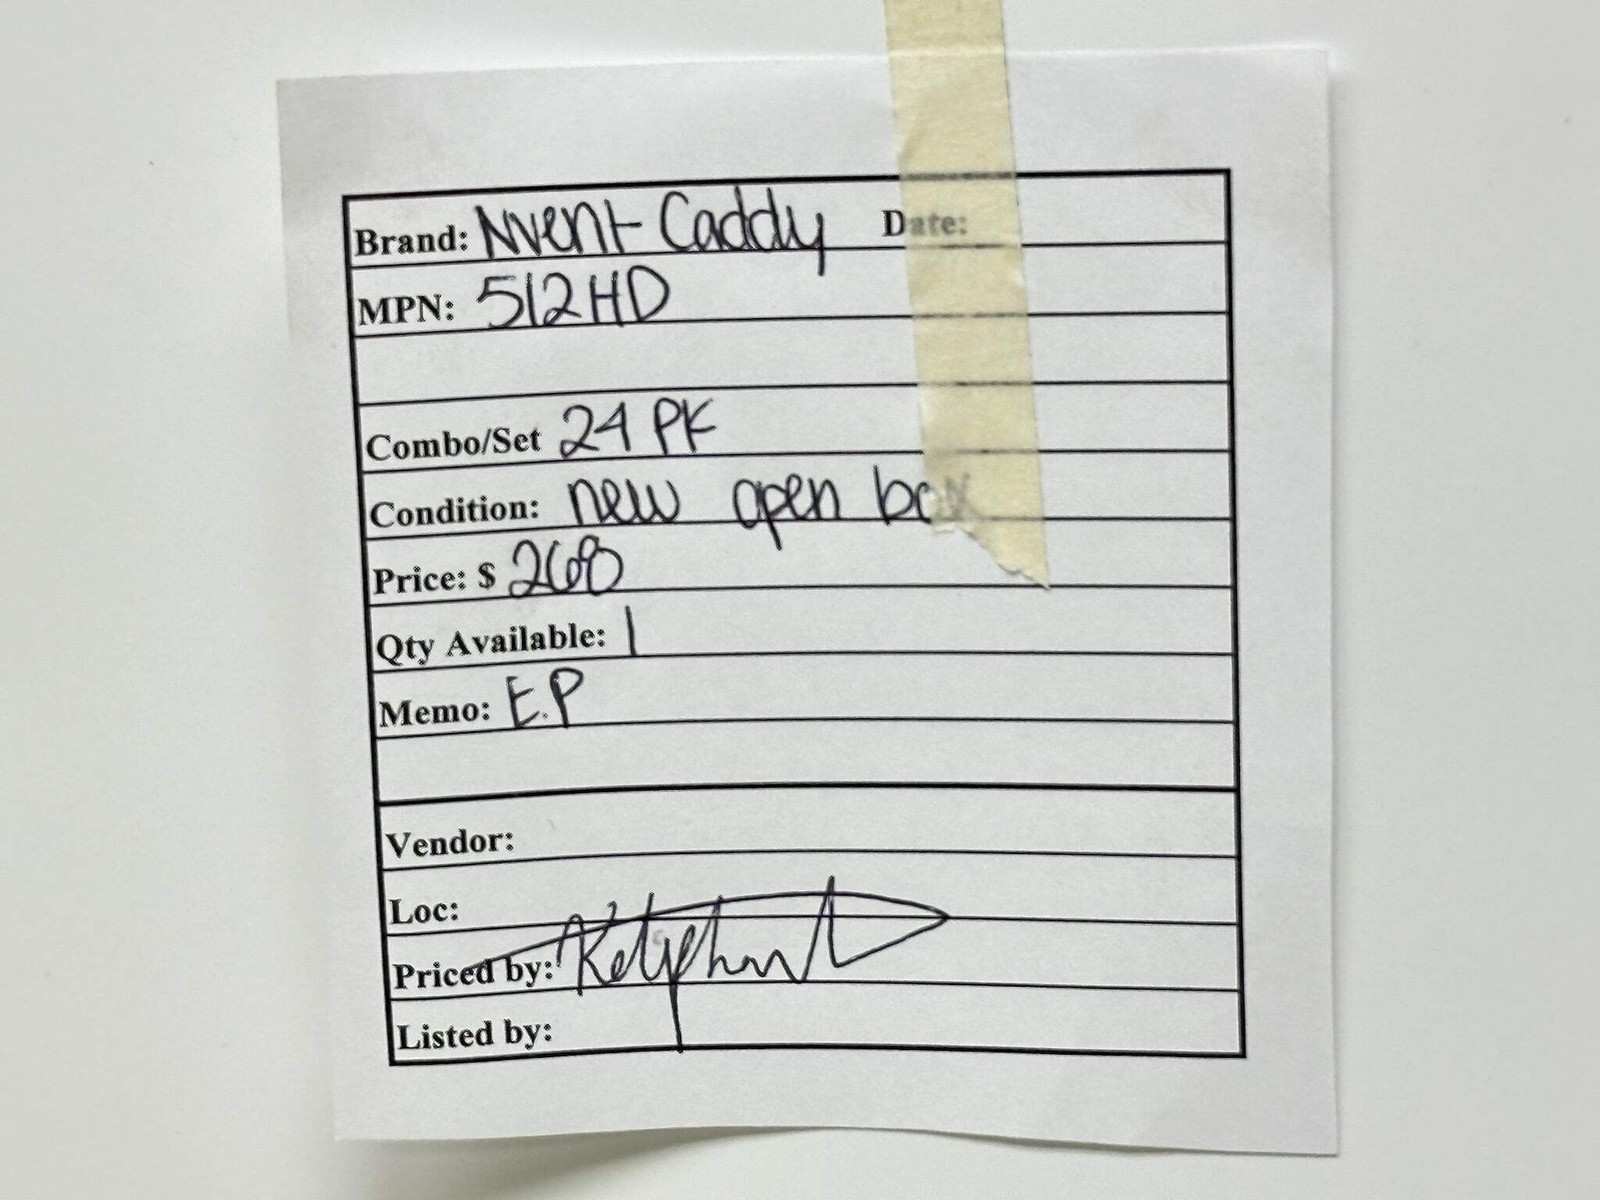 Brand: Nvent Caddy Date:
MPN: 512HD
Combo/Set 24 PK
Condition: new open box
Price: $ 268
Qty Available: 1
Memo: E.P
Vendor:
Loc:
Priced by:
Listed by: